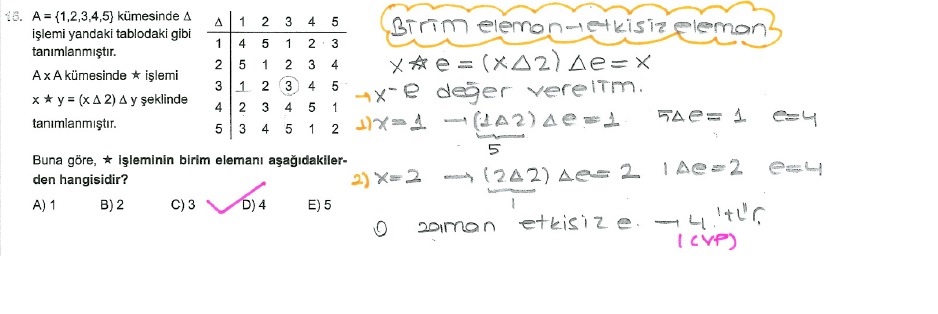 16. A = {1,2,3,4,5} kümesinde Δ
işlemi yandaki tablodaki gibi
tanımlanmıştır.
A x A kümesinde ★ işlemi
x ★ y = (x Δ 2) Δ y şeklinde
tanımlanmıştır.
Δ 1 2 3 4 5
1 4 5 1 2 3
2 5 1 2 3 4
3 1 2 3 4 5
4 2 3 4 5 1
5 3 4 5 1 2
Buna göre, ★ işleminin birim elemanı aşağıdakiler-
den hangisidir?
A) 1 B) 2 C) 3 D) 4 E) 5
Birim eleman→etkisiz eleman
x★e = (xΔ2)Δe = x
→x-e değer verelim.
1) x=1 → (1Δ2)Δe=1 5Δe=1 e=4
5
2) x=2 → (2Δ2)Δe=2 1Δe=2 e=4
1
O zaman etkisiz e. → 4'tür.
(CVP)